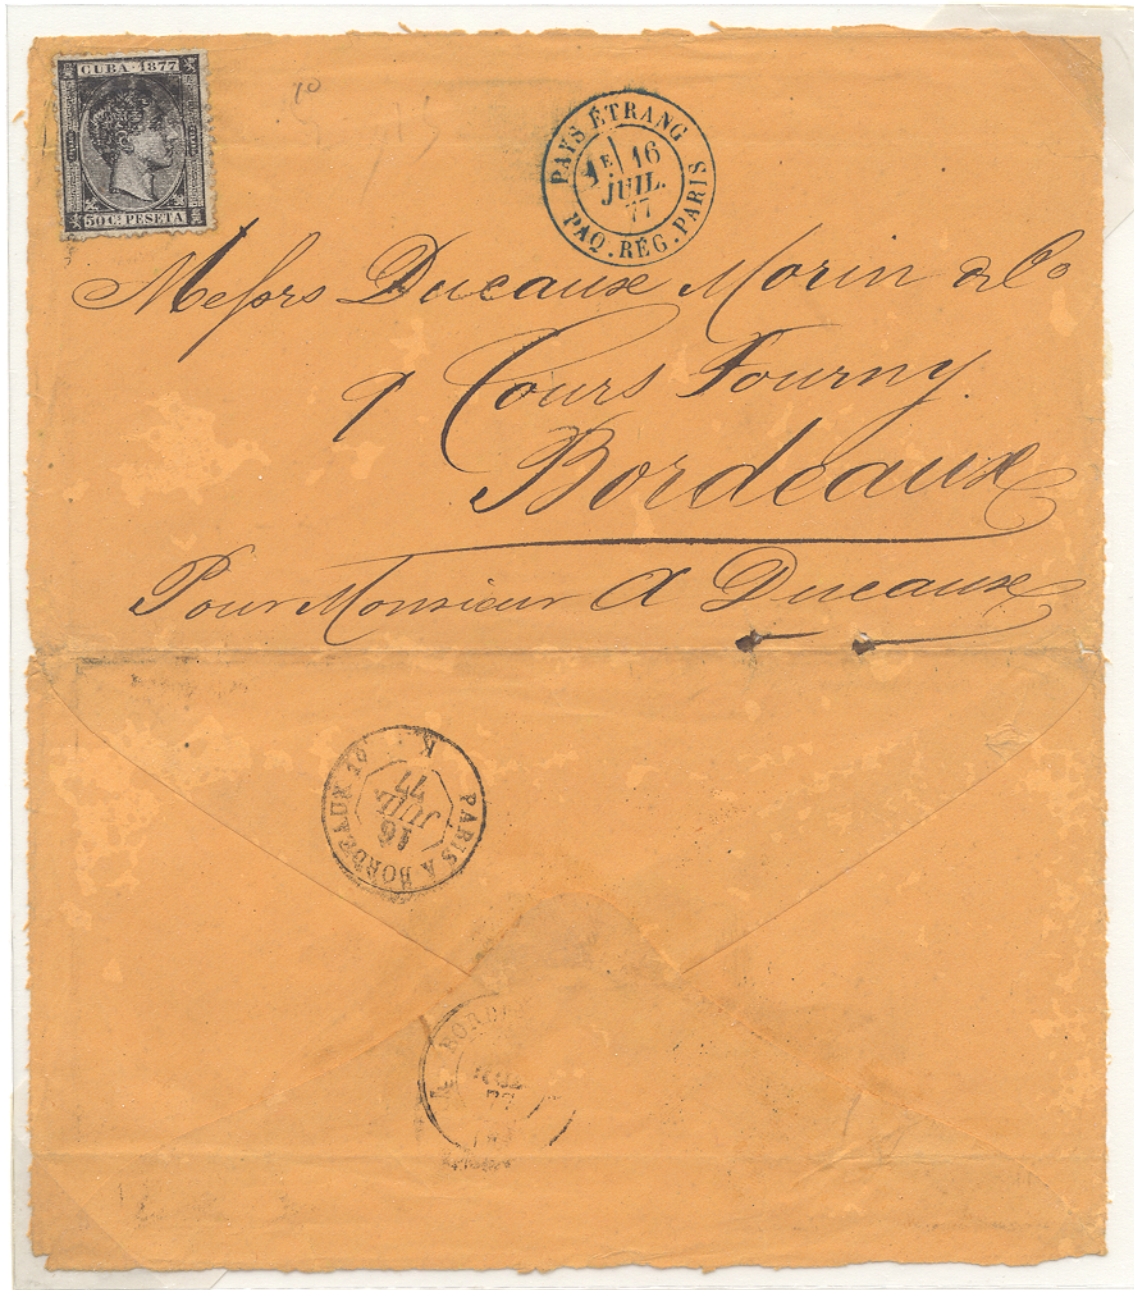 CUBA·1877
50 Cs PESETA
PAYS ÉTRANG
1E 16
JUIL.
77
PAQ. RÉG. PARIS
Messrs Ducaux Morin & Co
9 Cours Tourny
Bordeaux
Pour Monsieur A Ducaux
PARIS A BORDEAUX
K
16
JUIL
77
BORD
77